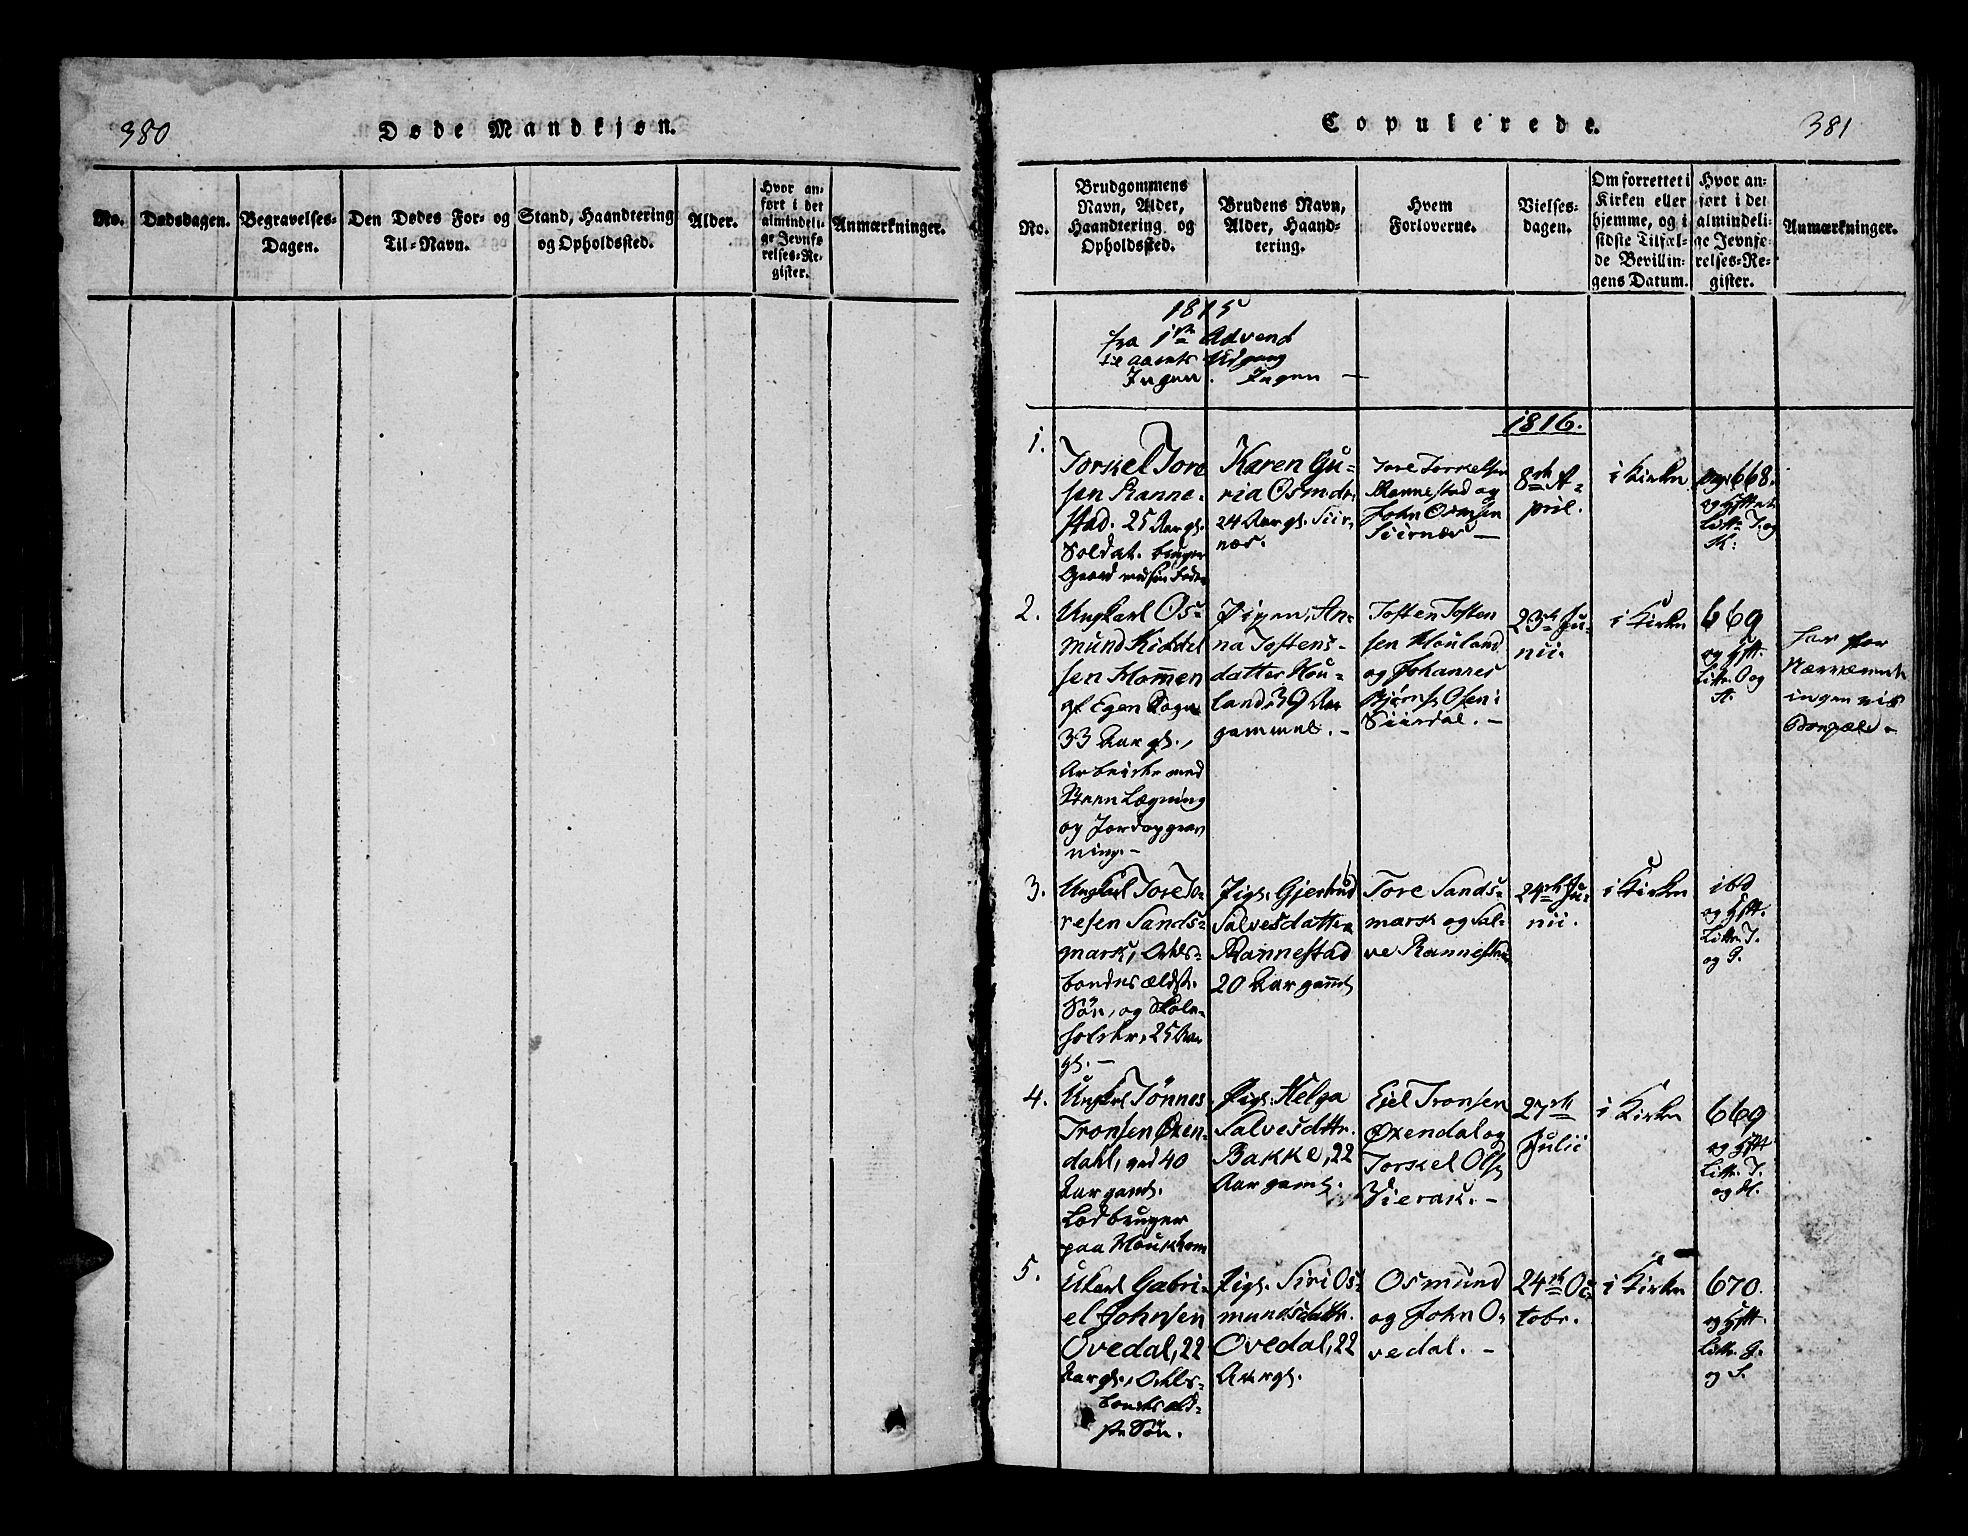 380
Døde Mandkjøn.
No.
Dødsdagen.
Begravelses-
Dagen.
Den Dødes For- og
Til-Navn.
Stand, Haandtering
og Opholdssted.
Alder.
Hvor an-
ført i det
almindeli-
ge Jevnfø
relses-Re-
gister.
Anmærkninger.
Copulerede.
381
No.
Brudgommens
Navn, Alder,
Haandtering og
Opholdssted.
Brudens Navn,
Alder, Haand-
tering.
Hvem
Forloverne.
Vielses-
dagen.
Om forrettet i
Kirken eller
hjemme, og i
sidste Tilfæl-
de Bevillin-
gens Datum.
Hvor an-
ført i det
almindeli-
ge Jevnfø-
relses-Re-
gister.
Anmærkninger.
1815
fra 1ste Advend
til aarets Udgang
Ingen. Ingen —
1816.
1.
Torkel Tore
sen Ranne-
stad. 25 Aar gl.
Soldat. bruger
Gaard med sin Fader
Karen Gu-
ria Osmdr.
24 Aar gl. Siir-
næs.
Tore Torkelsen
Rannestad og
John Osmsen
Siirnæs —
8de A-
pril.
i Kirken
pag. 668.
og Hftet
Littr. T. og
K:
2.
Ungkarl Os-
mund Kiddel
sen Homen
af Egen Sogn
33 Aar gl.,
Arbeider med
Steen Lægning
og Jordopgrav
ning. —
Pigen, An-
na Tostens-
datter Hou-
land, 39 Aar
gammel. —
Tosten Tosten
sen Houland
og Johannes
Bjørns. Osen i
Siirdal. —
23de Ju-
nii.
i Kirken
669
og Hftt.
Littr. O og
A.
ingen
3.
Ungkarl Tore To-
resen Sands-
mark, Odels-
bondes ældste
Søn, og Skole-
holder, 25 Aar
gl. —
Pige. Gjertrud
Salvesdatter
Rannestad
20 Aar gaml
Tore Sands-
mark og Sal-
ve Rannestad
24de Ju-
nii.
i Kirken
ibd
og Hftt.
Littr. T.
og G.
4.
Ungkarl Tønnes
Tronsen Øxen-
dahl, ved 40
Aar gaml.
Lodbruger
paa Houkhom
Pige. Helga
Salvesdttr.
Bakke, 22
Aar gaml.
Ejel Tronsen
Øxendal og
Torkel Ols.
Vierak. —
27de
Julii
i Kirken
669
og Hftt
Littr. T.
og H.
5.
Ukarl Gabri-
el Johnsen
Ovedal, 22
Aar gl., Odels-
bondes æld-
ste Søn.
Pige. Siri Os-
mundsdattr.
Ovedal, 22
Aar gl.
Osmund
og John O-
vedal. —
24de Oc-
tobr.
i Kirken
670.
og Hftt.
Littr. G.
og S.